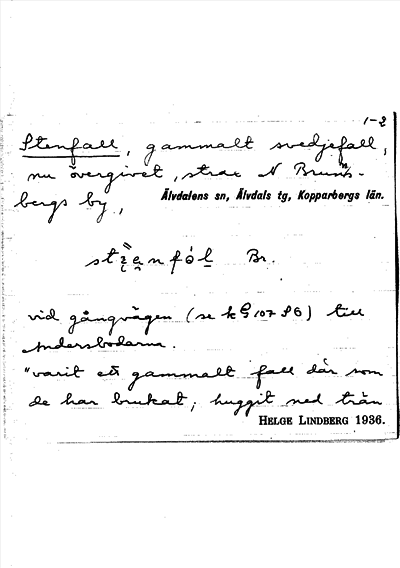 1-2
Stenfall, gammalt svedjefall,
nu övergivet, strax N Brunns-
bergs by,
Älvdalens sn, Älvdals tg, Kopparbergs län.
Br.
vid gångvägen (se till
Andersbodarna.
"varit ett gammalt fall där som
de har brukat, huggit ned trän
HELGE LINDBERG 1936.